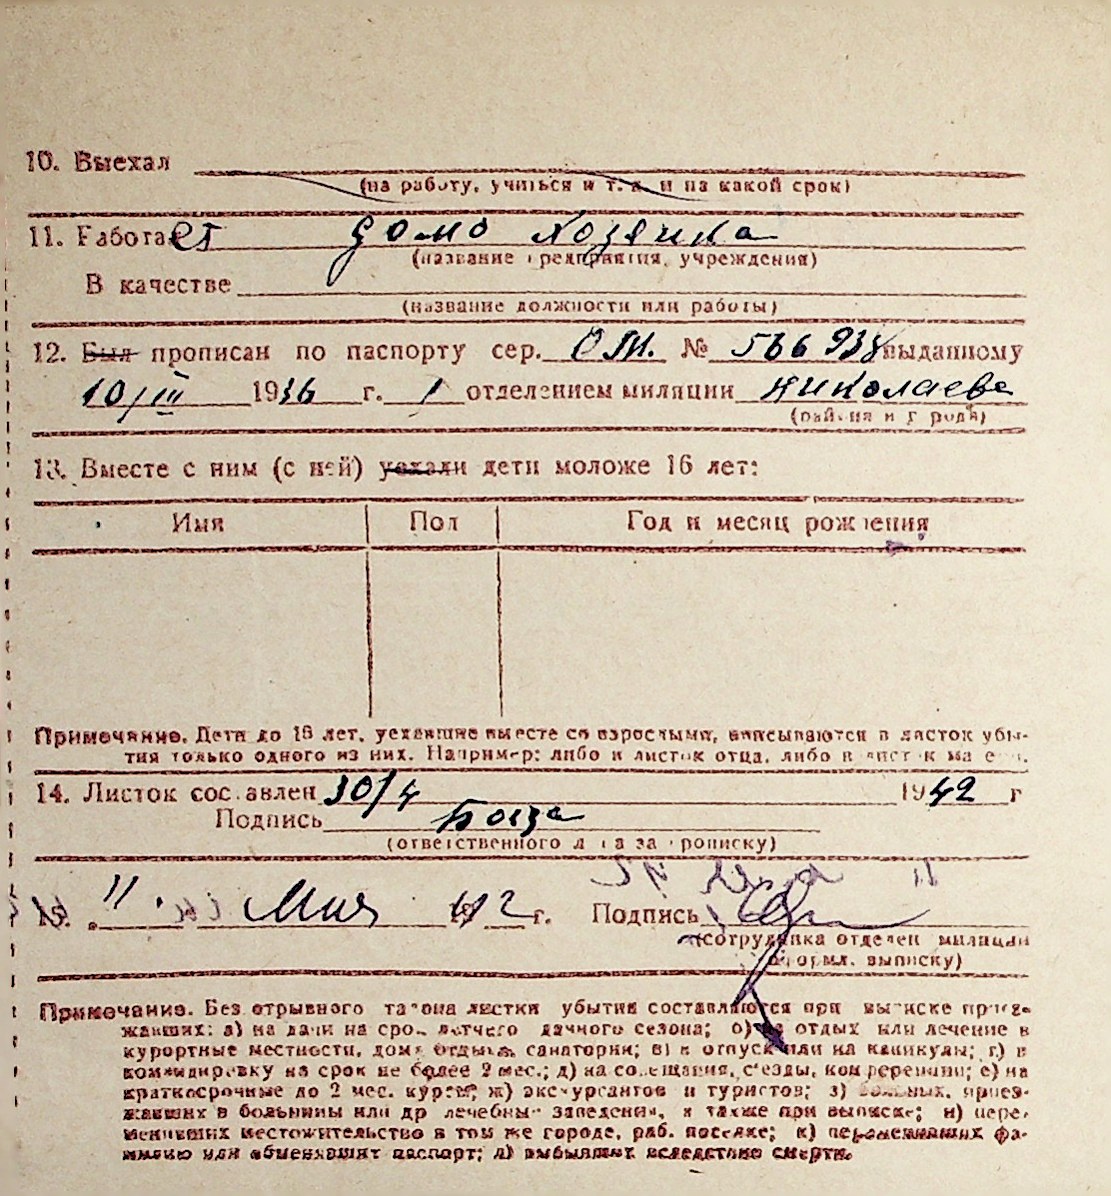 10. Выехал
(на работу, учиться и т. д. и на какой срок)
11. Работает домо хозяика
(название предприятия, учреждения)
В качестве
(название должности или работы)
12. Был прописан по паспорту сер. № 566 938 выданному
10/III 1936 г. 1 отделением милиции Николаева
(района и города)
13. Вместе с ним (с ней) уехали дети моложе 16 лет:
Имя Пол Год и месяц рождения
Примечание. Дети до 16 лет, уехавшие вместе со взрослыми, вписываются в листок убы-
тия только одного из них. Например: либо в листок отца, либо в листок матери.
14. Листок составлен 30/4 1942 г
Подпись
(ответственного лица за прописку)
15. „11" Мая 1942 г. Подпись
(сотрудника отделен милиции
оформл. выписку)
Примечание. Без отрывного талона листки убытия составляются при выписке приез-
жавших: а) на дачи на срок летнего дачного сезона; б) на отдых или лечение в
курортные местности, дома отдыха, санатории; в) в отпуск или на каникулы; г) в
командировку на срок не более 2 мес.; д) на совещания, съезды, конференции; е) на
краткосрочные до 2 мес. курсы; ж) экскурсантов и туристов; з) больных, приез-
жавших в больницы или др лечебные заведения, а также при выписке; и) пере-
менивших местожительство в том же городе, раб. поселке; к) переменивших фа-
милию или обменявших паспорт; л) выбывших вследствие смерти.